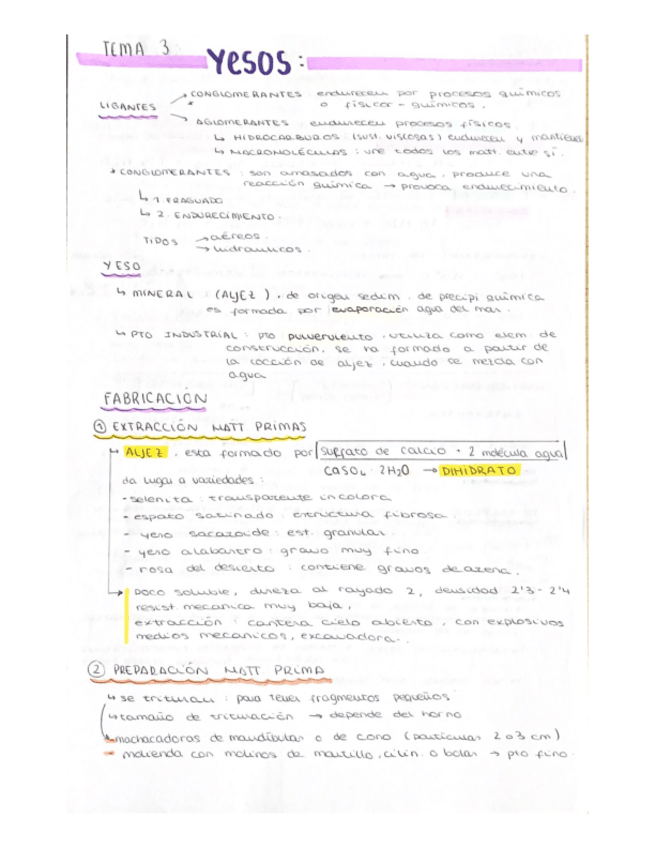 TEMA 3
Yesos:
LIGANTES
CONGLOMERANTES : endurecen por procesos químicos
o físicos - químicos.
AGLOMERANTES : endurecen procesos físicos
↳ HIDROCARBUROS : (sust. viscosas) endurecen y mantienen
↳ MACROMOLÉCULAS : une todos los matt. entre sí.
* CONGLOMERANTES : son amasados con agua, produce una
reacción química → provoca endurecimiento.
↳ 1. FRAGUADO
↳ 2. ENDURECIMIENTO.
TIPOS → aéreos.
→ hidraulicos.
YESO
↳ MINERAL : (ALJEZ). de origen sedim. de precipi química
es formada por evaporación agua del mar.
↳ PTO INDUSTRIAL : pto pulverulento. utiliza como elem de
construcción, se ha formado a partir de
la cocción de aljez, cuando se mezcla con
agua
FABRICACIÓN
① EXTRACCIÓN MATT PRIMAS
↳ ALJEZ. esta formado por sulfato de calcio + 2 molécula agua
CaSO4 · 2H2O → DIHIDRATO
da lugar a variedades :
- selenita : transparente incolora
- espato satinado : estructura fibrosa.
- yeso sacaroide : est. granular.
- yeso alabastro : grano muy fino
- rosa del desierto : contiene granos de arena.
→ poco soluble, dureza al rayado 2, densidad 2'3 - 2'4
resist. mecanica muy baja,
extracción : cantera cielo abierto, con explosivos
medios mecanicos, excavadora..
② PREPARACIÓN MATT PRIMA
↳ se trituran : para tener fragmentos pequeños
↳ tamaño de trituración → depende del horno
machacadoras de mandíbulas o de cono (particulas 2 o 3 cm)
- molienda con molinos de martillo, cilin. o bolas → pto fino.